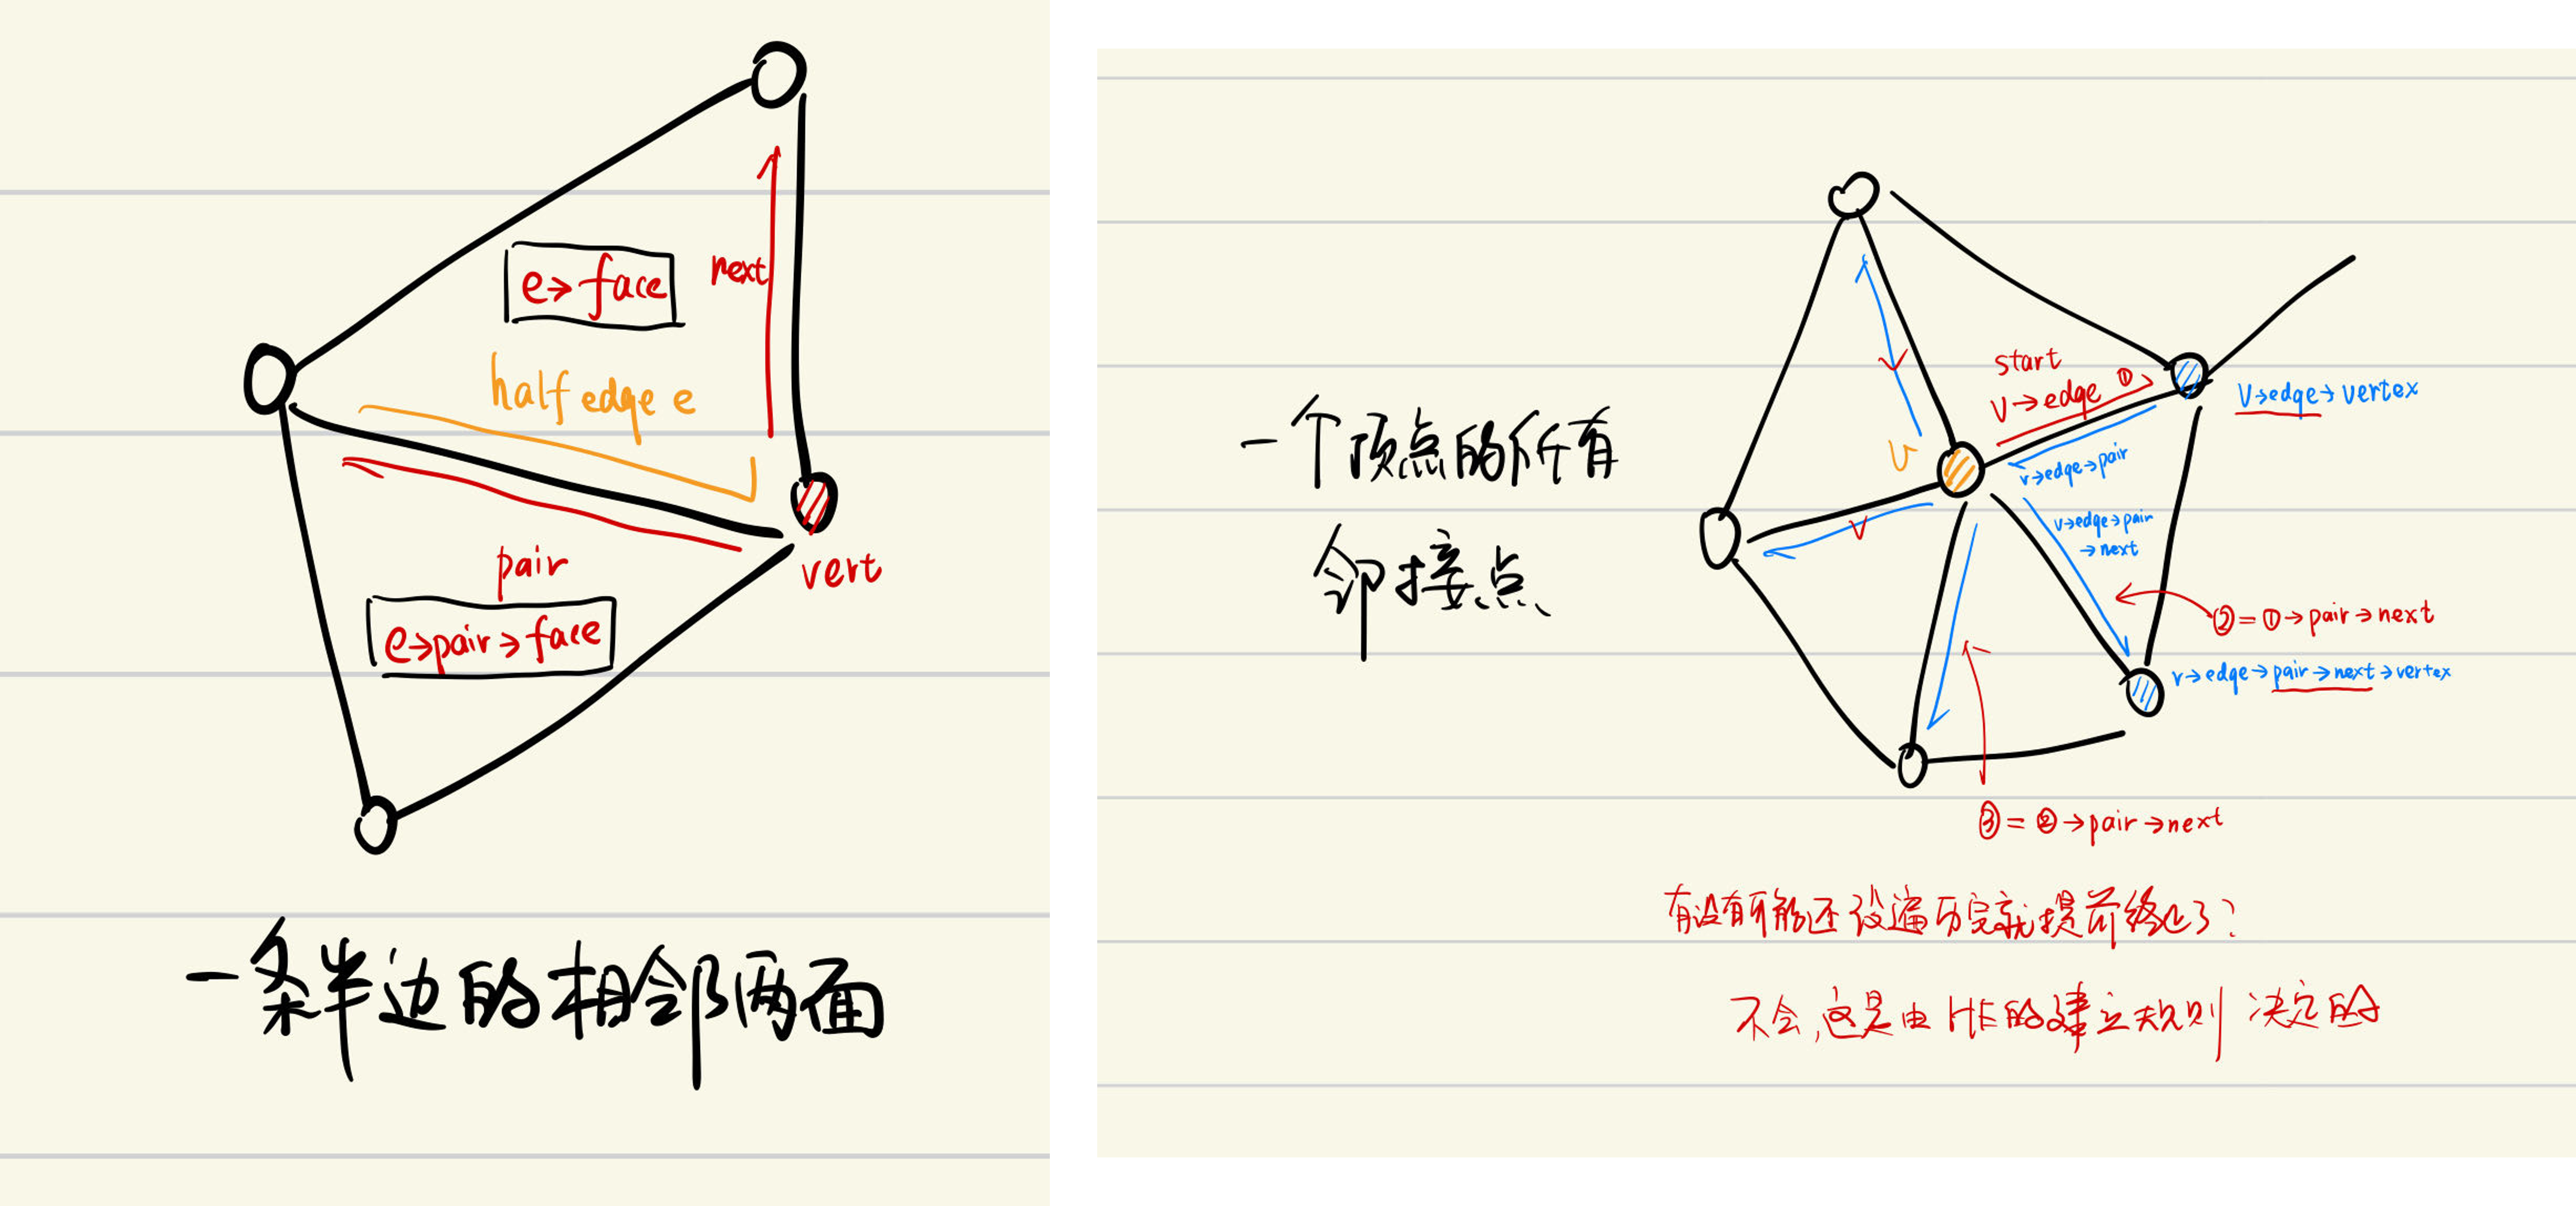 next
e→face
half edge e
pair
vert
e→pair→face
一条半边的相邻两面
一个顶点的所有
邻接点
start
v→edge ①
v→edge→vertex
v
v→edge→pair
v→edge→pair
→next
②=①→pair→next
v→edge→pair→next→vertex
③=②→pair→next
有没有可能还没遍历完就提前终止了?
不会,这是由HE的建立规则 决定的